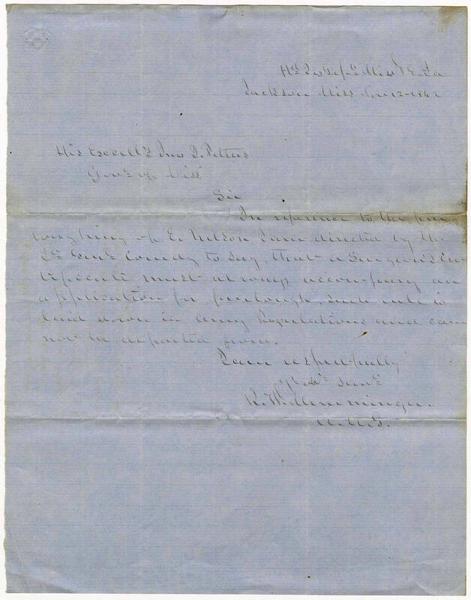 Hd Qrs Dept Miss & E. La
Jackson Miss Nov 12 1862
His Excell'y Jno J. Pettus
Gov'r of Miss
Sir
In reference to the fur
loughing of E. Nelson I am directed by the
Lt Gen'l Comdg to say, that a Surgeon's cer
tificate must always accompany an
application for furlough. Such rule is
laid down in Army Regulations and can
not be departed from.
I am respectfully
Yr obt Serv't
R. W. Memminger
A.A.G.